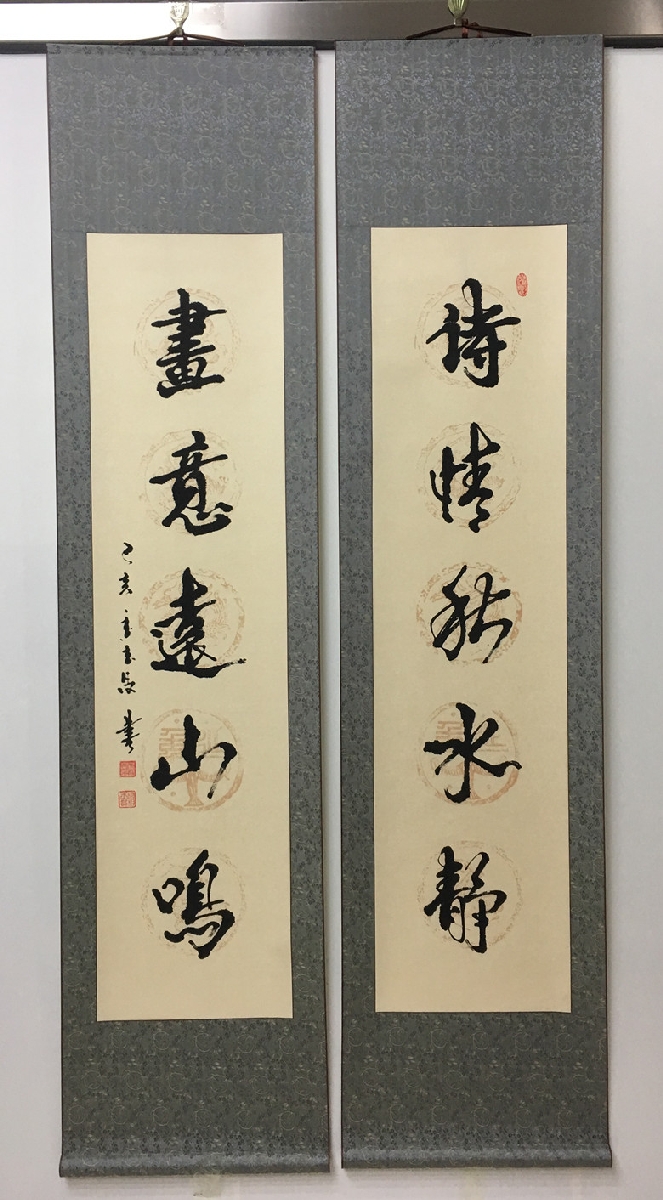 詩情秋水靜
畫意遠山鳴
己亥
書